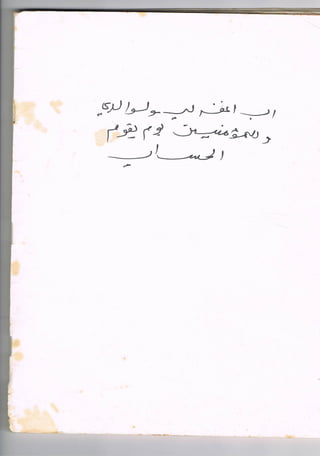 اب اغفر لي ولوالدي
وللمؤمنين يوم يقوم
الحساب